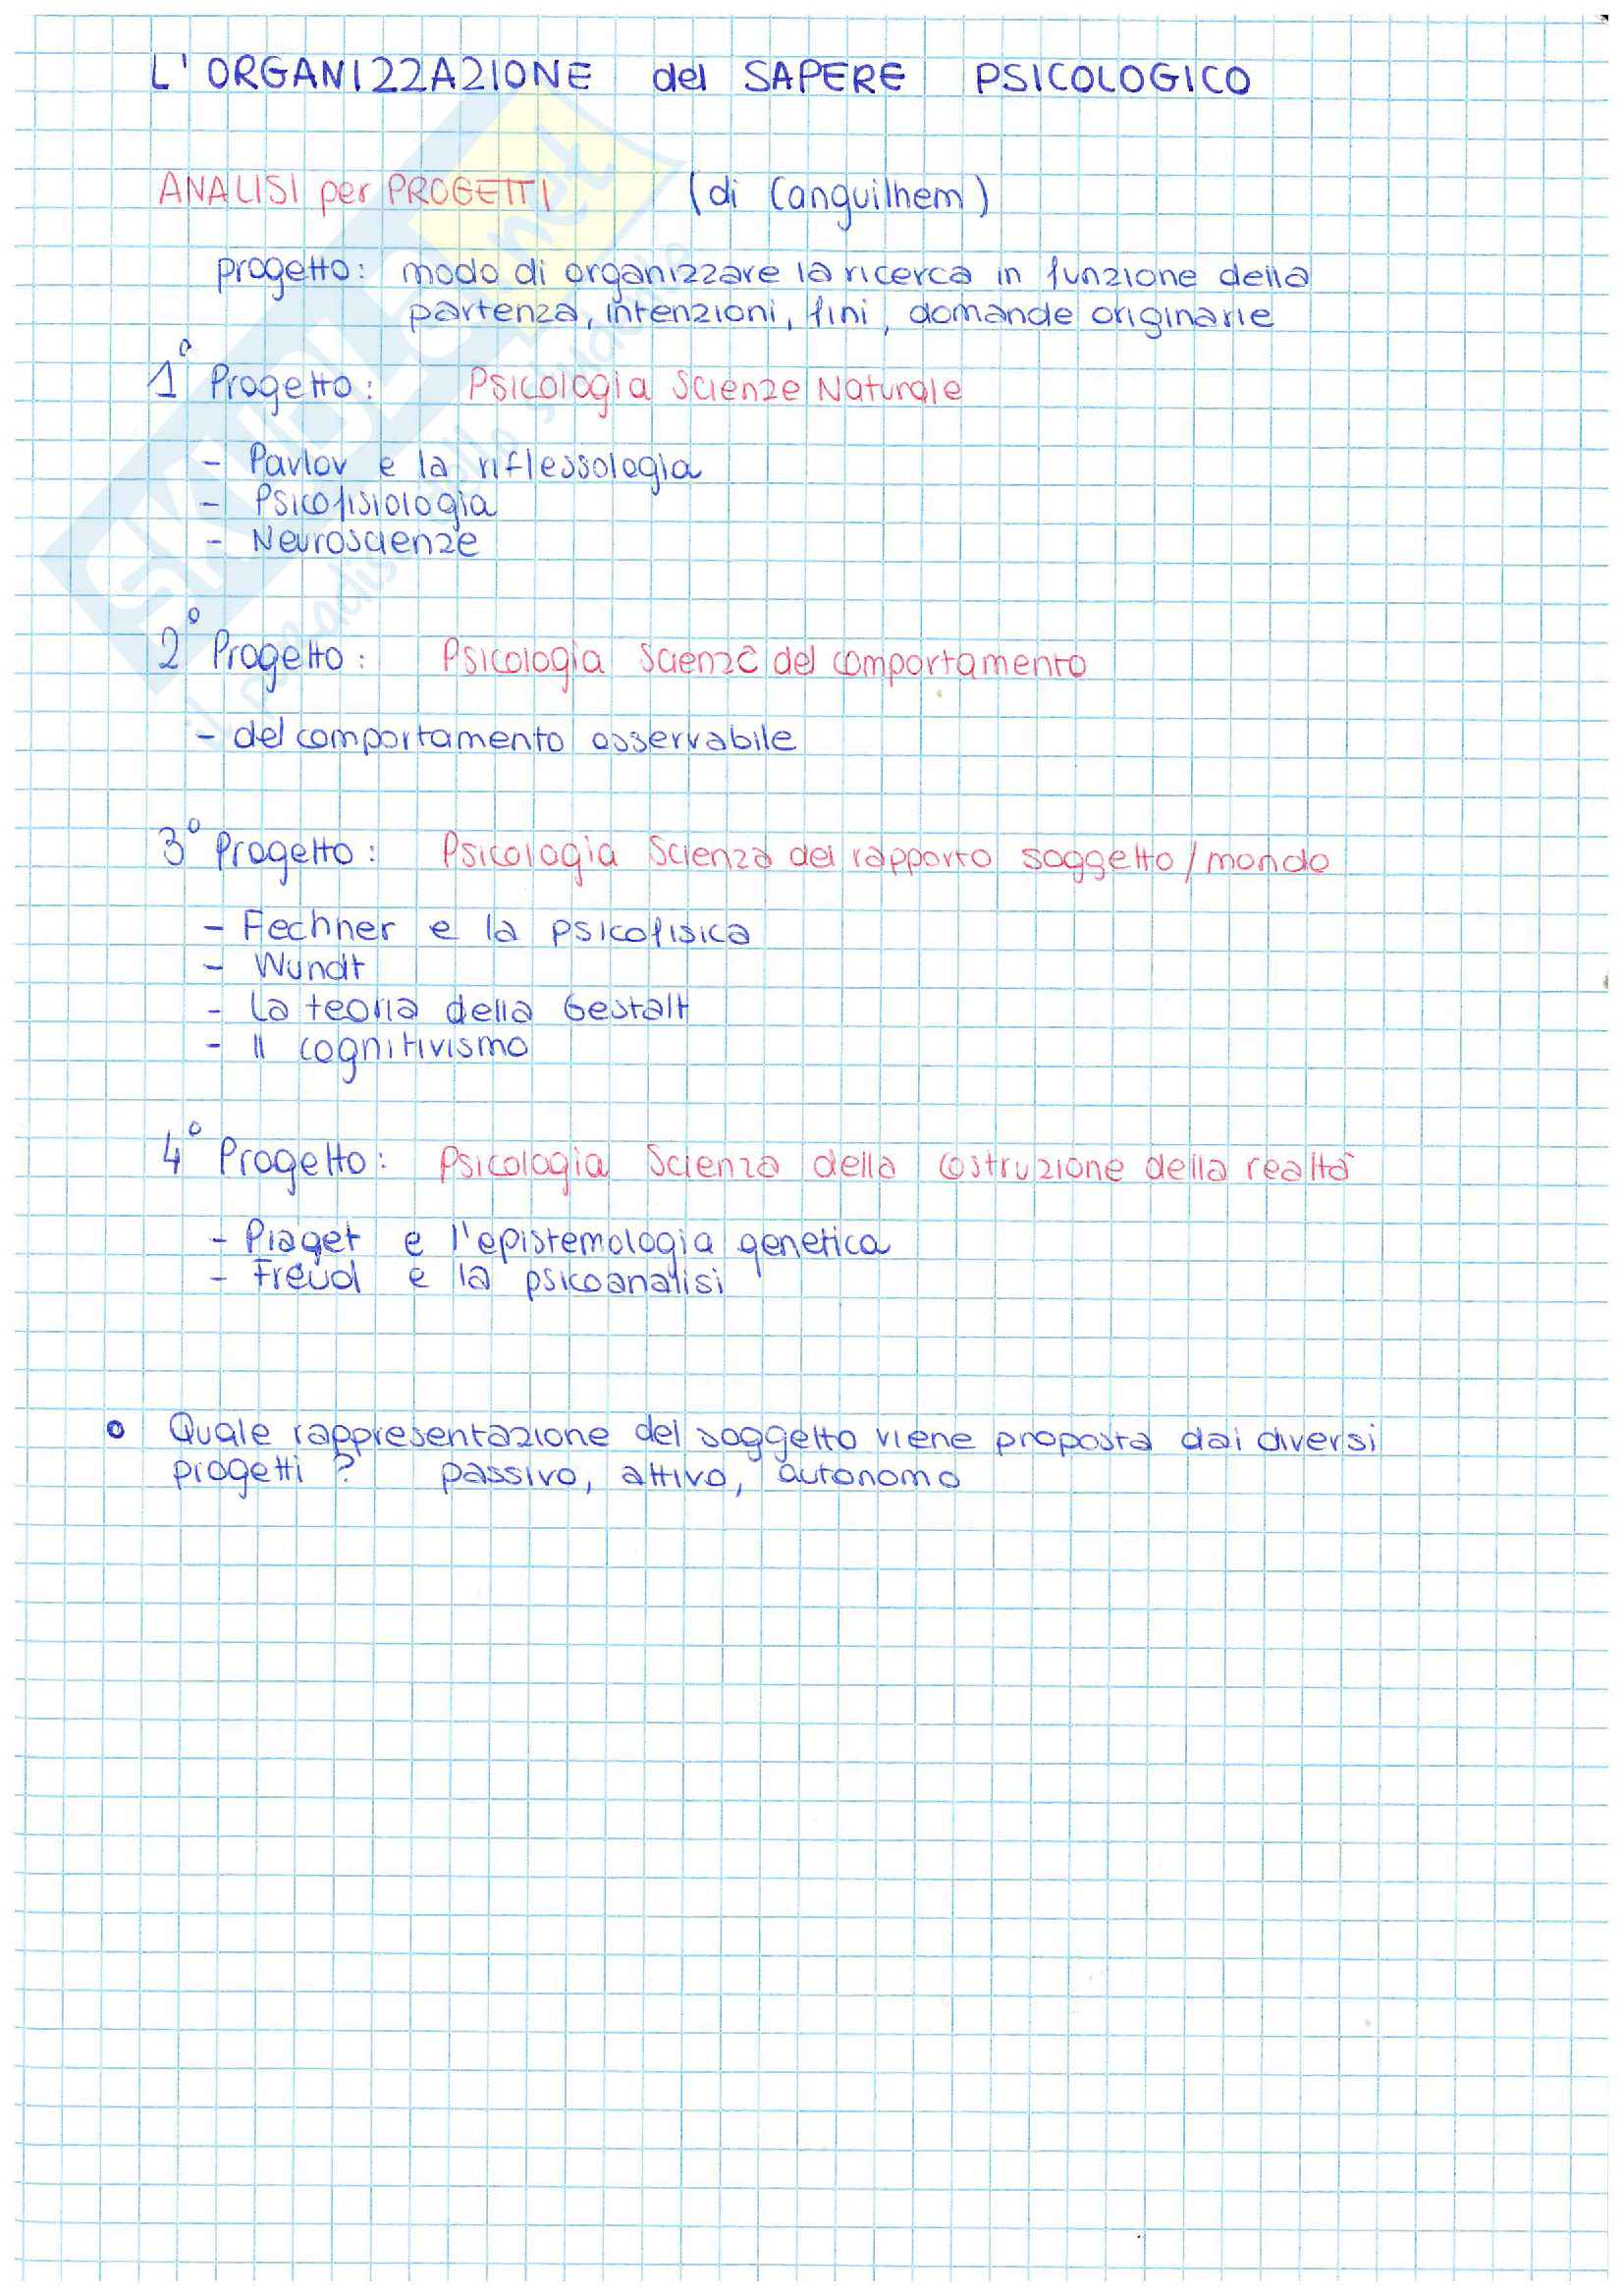 L'ORGANIZZAZIONE del SAPERE PSICOLOGICO
ANALISI per PROGETTI (di Canguilhem)
progetto: modo di organizzare la ricerca in funzione della
partenza, intenzioni, fini, domande originarie
1° Progetto: Psicologia Scienze Naturale
- Pavlov e la riflessologia
- Psicofisiologia
- Neuroscienze
2° Progetto: Psicologia Scienze del comportamento
- del comportamento osservabile
3° Progetto: Psicologia Scienza del rapporto soggetto/mondo
- Fechner e la psicofisica
- Wundt
- La teoria della Gestalt
- Il cognitivismo
4° Progetto: Psicologia Scienza della costruzione della realtà
- Piaget e l'epistemologia genetica
- Freud e la psicoanalisi
• Quale rappresentazione del soggetto viene proposta dai diversi
progetti? passivo, attivo, autonomo